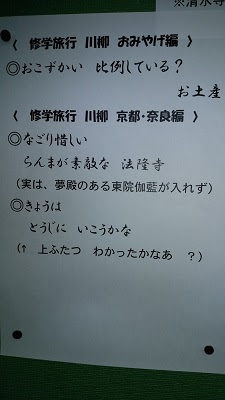 ※清水寺
〈 修学旅行 川柳 おみやげ編 〉
◎おこずかい 比例している?
お土産
〈 修学旅行 川柳 京都・奈良編 〉
◎なごり惜しい
らんまが素敵な 法隆寺
(実は、夢殿のある東院伽藍が入れず)
◎きょうは
とうじに いこうかな
(↑ 上ふたつ わかったかなあ ?)